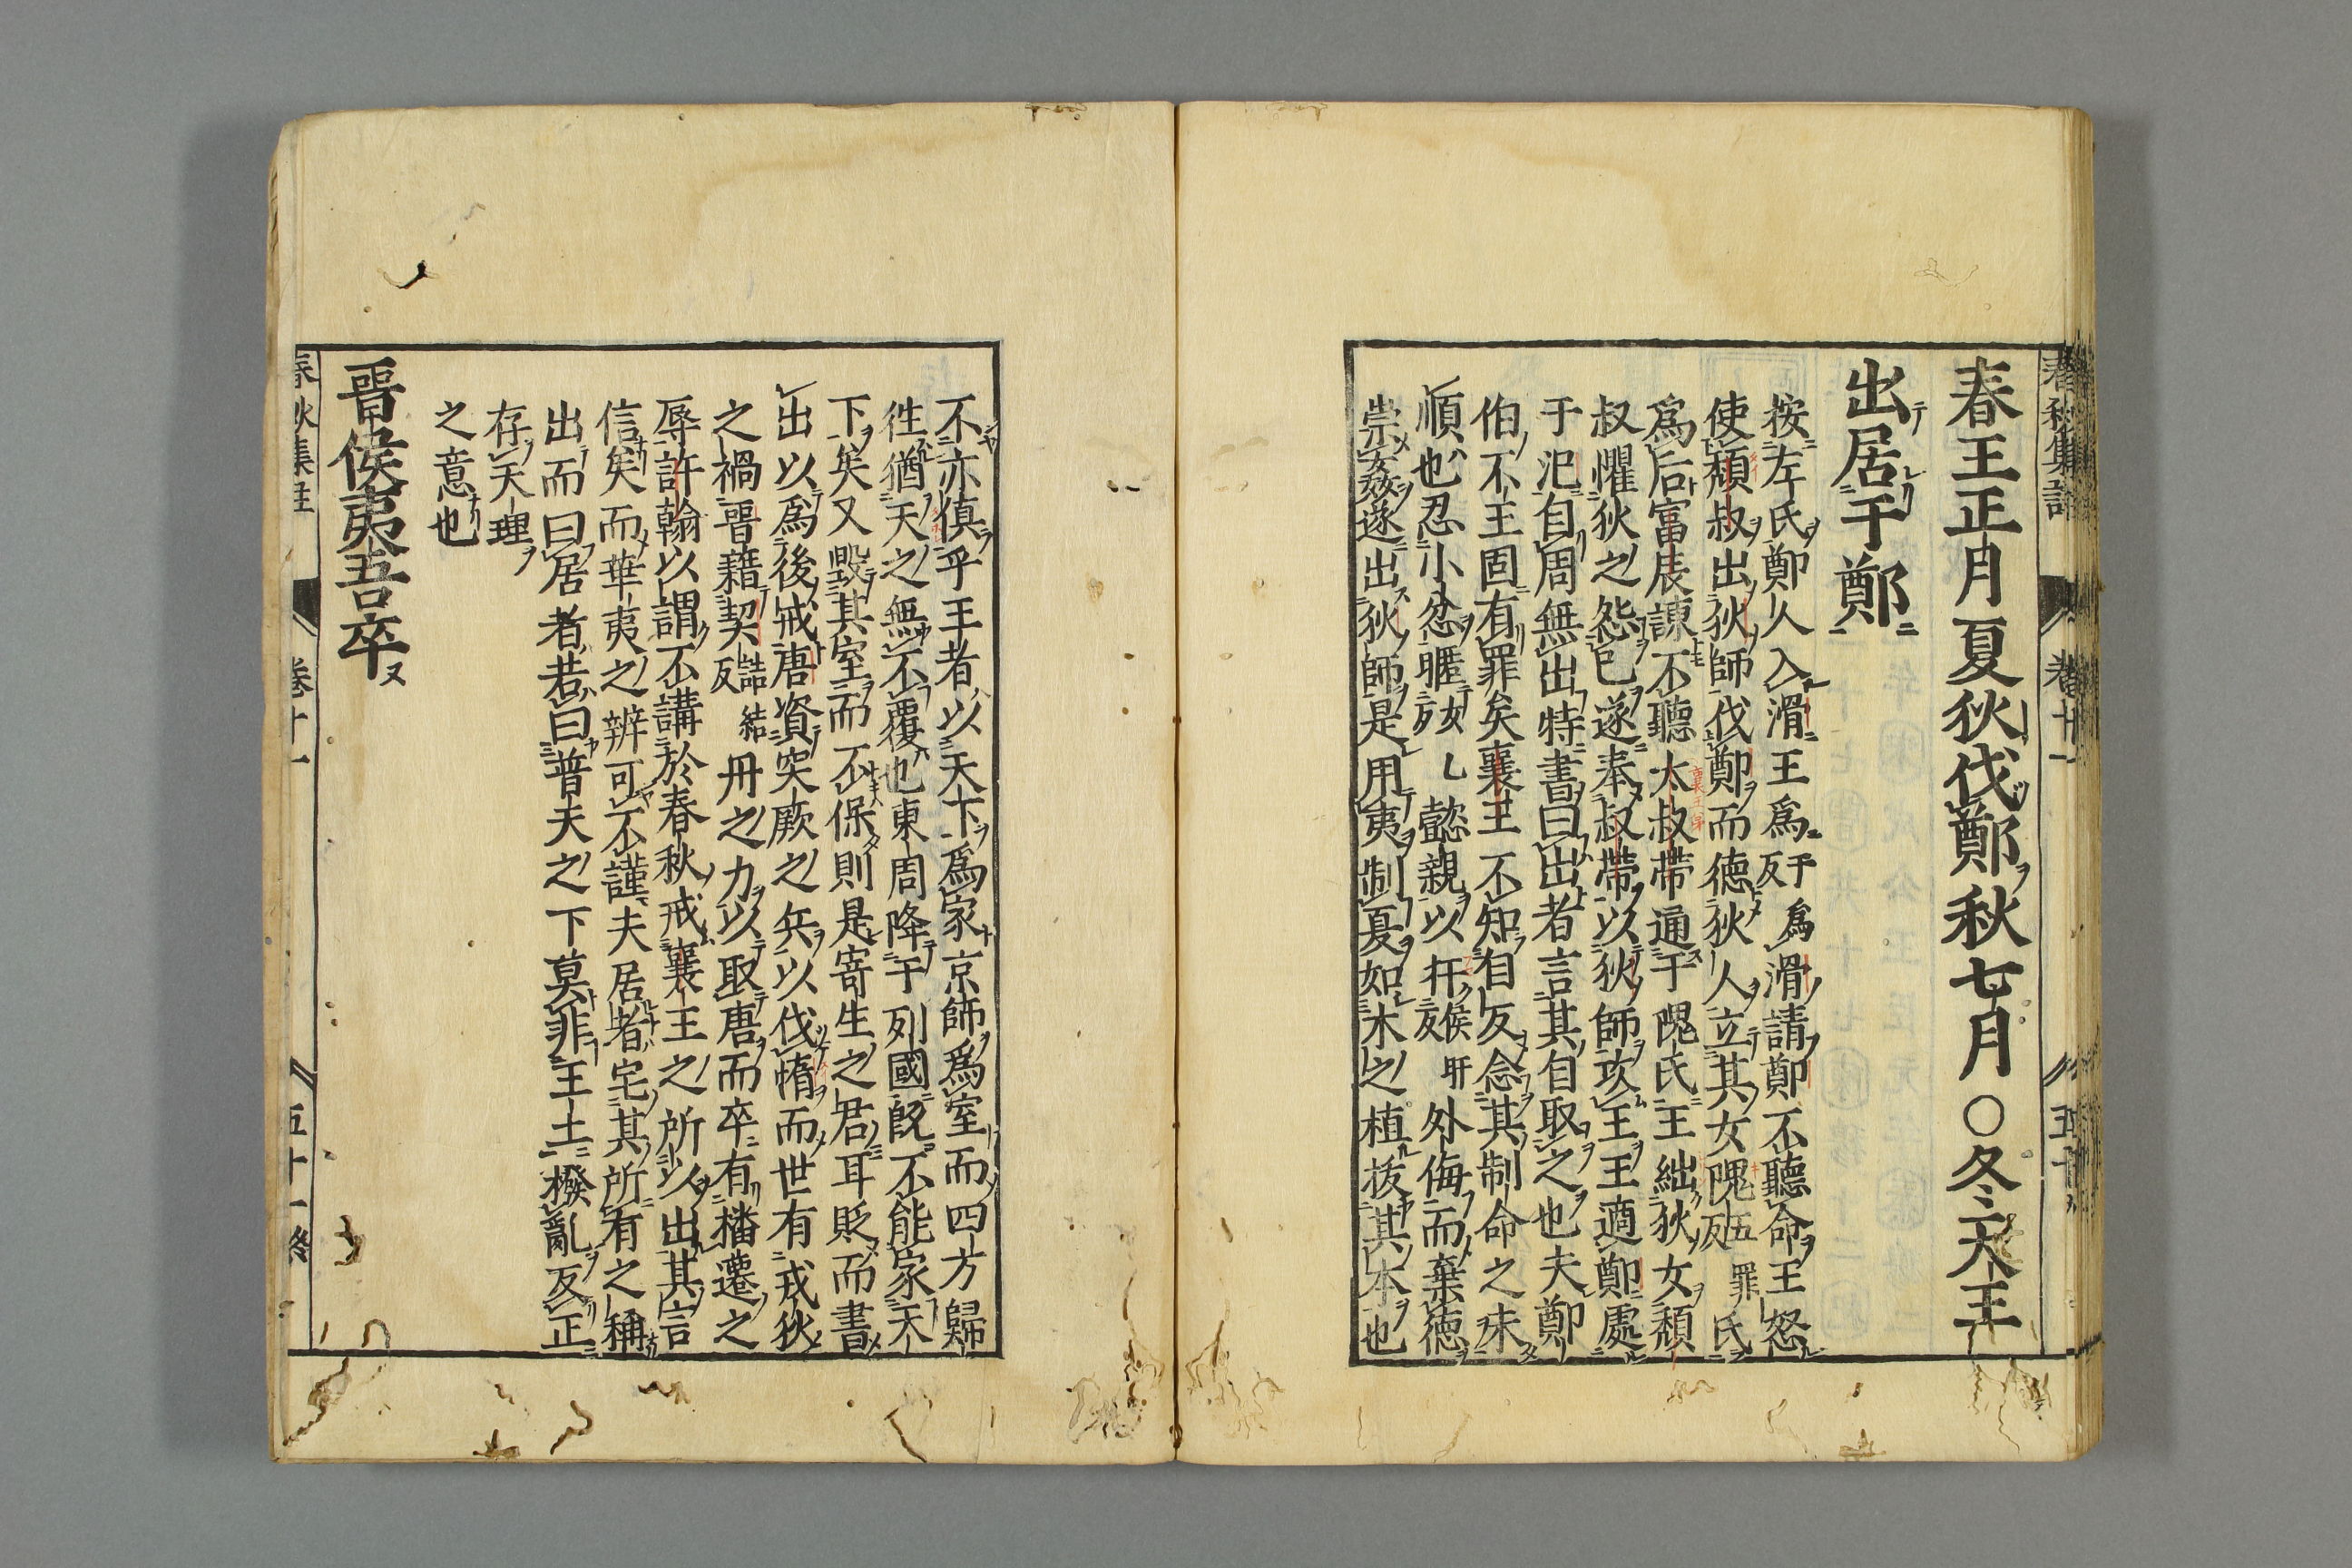 春王正月夏狄伐鄭秋七月○冬天王
出居于鄭
按左氏鄭人入滑王爲于反爲滑請鄭不聽命王怒
使頹叔出狄師伐鄭而德狄人立其女隗五罪反氏
爲后富辰諌不聽太叔帯通于隗氏王絀狄女頹
叔懼狄之怨已遂奉叔帯以狄師攻王王適鄭處
于氾自周無出特書曰出者言其自取之也夫鄭
伯不王固有罪矣襄王不知自反念其制命之未
順也忍小忿暱女乙反懿親以扞侯旰反外侮而棄德
崇姦遂出狄師是用夷制夏如木之植拔其本也
不亦傎乎王者以天下爲家京師爲室而四方歸
徃猶天之無不覆也東周降于列國既不能家天
下矣又毀其室而不保則是寄生之君耳貶而書
出以爲後戒唐資突厥之兵以伐惰而世有戎狄
之禍晋藉契詰結反丹之力以取唐而卒有播遷之
辱許翰以謂不講於春秋戒襄王之所以出其言
信矣而華夷之辨可不謹夫居者宅其所有之稱
出而曰居者若曰普天之下莫非王土撥亂反正
存天理
之意也
晋侯夷吾卒
春秋集註 卷十一 五十一終